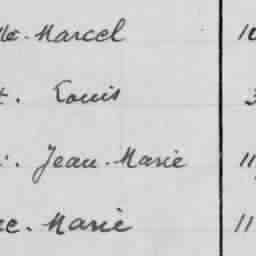 Marcel 10
Louis
Jean-Marie 11
Marie 11